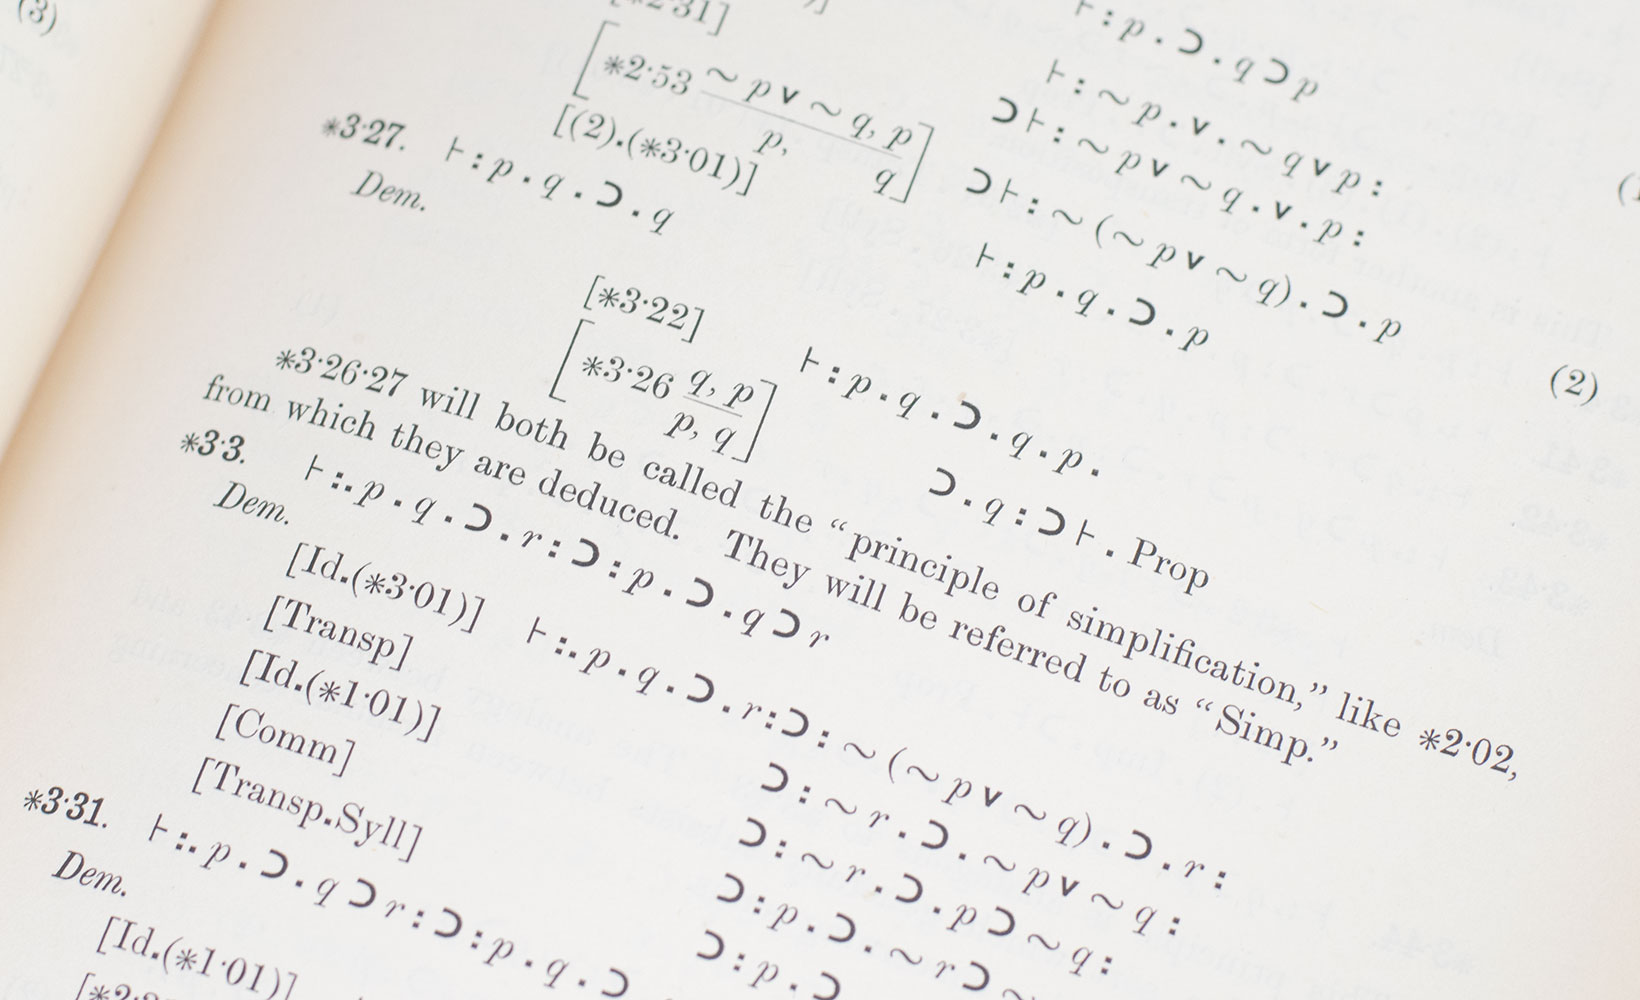 (3)
[*2·31]
⊢ : p . ⊃ . q ⊃ p
⊢ : ~ p . ∨ . ~ q ∨ p :
[*2·53 ~ p ∨ ~ q, p / p, q] ⊃ ⊢ : ~ p ∨ ~ q . ∨ . p :
⊃ ⊢ : ~ (~ p ∨ ~ q) . ⊃ . p
[(2).(*3·01)] ⊢ : p . q . ⊃ . p
(2)
*3·27. ⊢ : p . q . ⊃ . q
Dem.
[*3·22] ⊢ : p . q . ⊃ . q . p .
[*3·26 q, p / p, q] ⊃ . q : ⊃ ⊢ . Prop
*3·26·27 will both be called the “principle of simplification,” like *2·02,
from which they are deduced. They will be referred to as “Simp.”
*3·3. ⊢ :. p . q . ⊃ . r : ⊃ : p . ⊃ . q ⊃ r
Dem.
[Id.(*3·01)] ⊢ :. p . q . ⊃ . r : ⊃ : ~ (~ p ∨ ~ q) . ⊃ . r :
[Transp] ⊃ : ~ r . ⊃ . ~ p ∨ ~ q :
[Id.(*1·01)] ⊃ : ~ r . ⊃ . p ⊃ ~ q :
[Comm] ⊃ : p . ⊃ . ~ r ⊃ ~
[Transp.Syll] ⊃ : p . ⊃
*3·31. ⊢ :. p . ⊃ . q ⊃ r : ⊃ : p . q . ⊃
Dem.
[Id.(*1·01)]